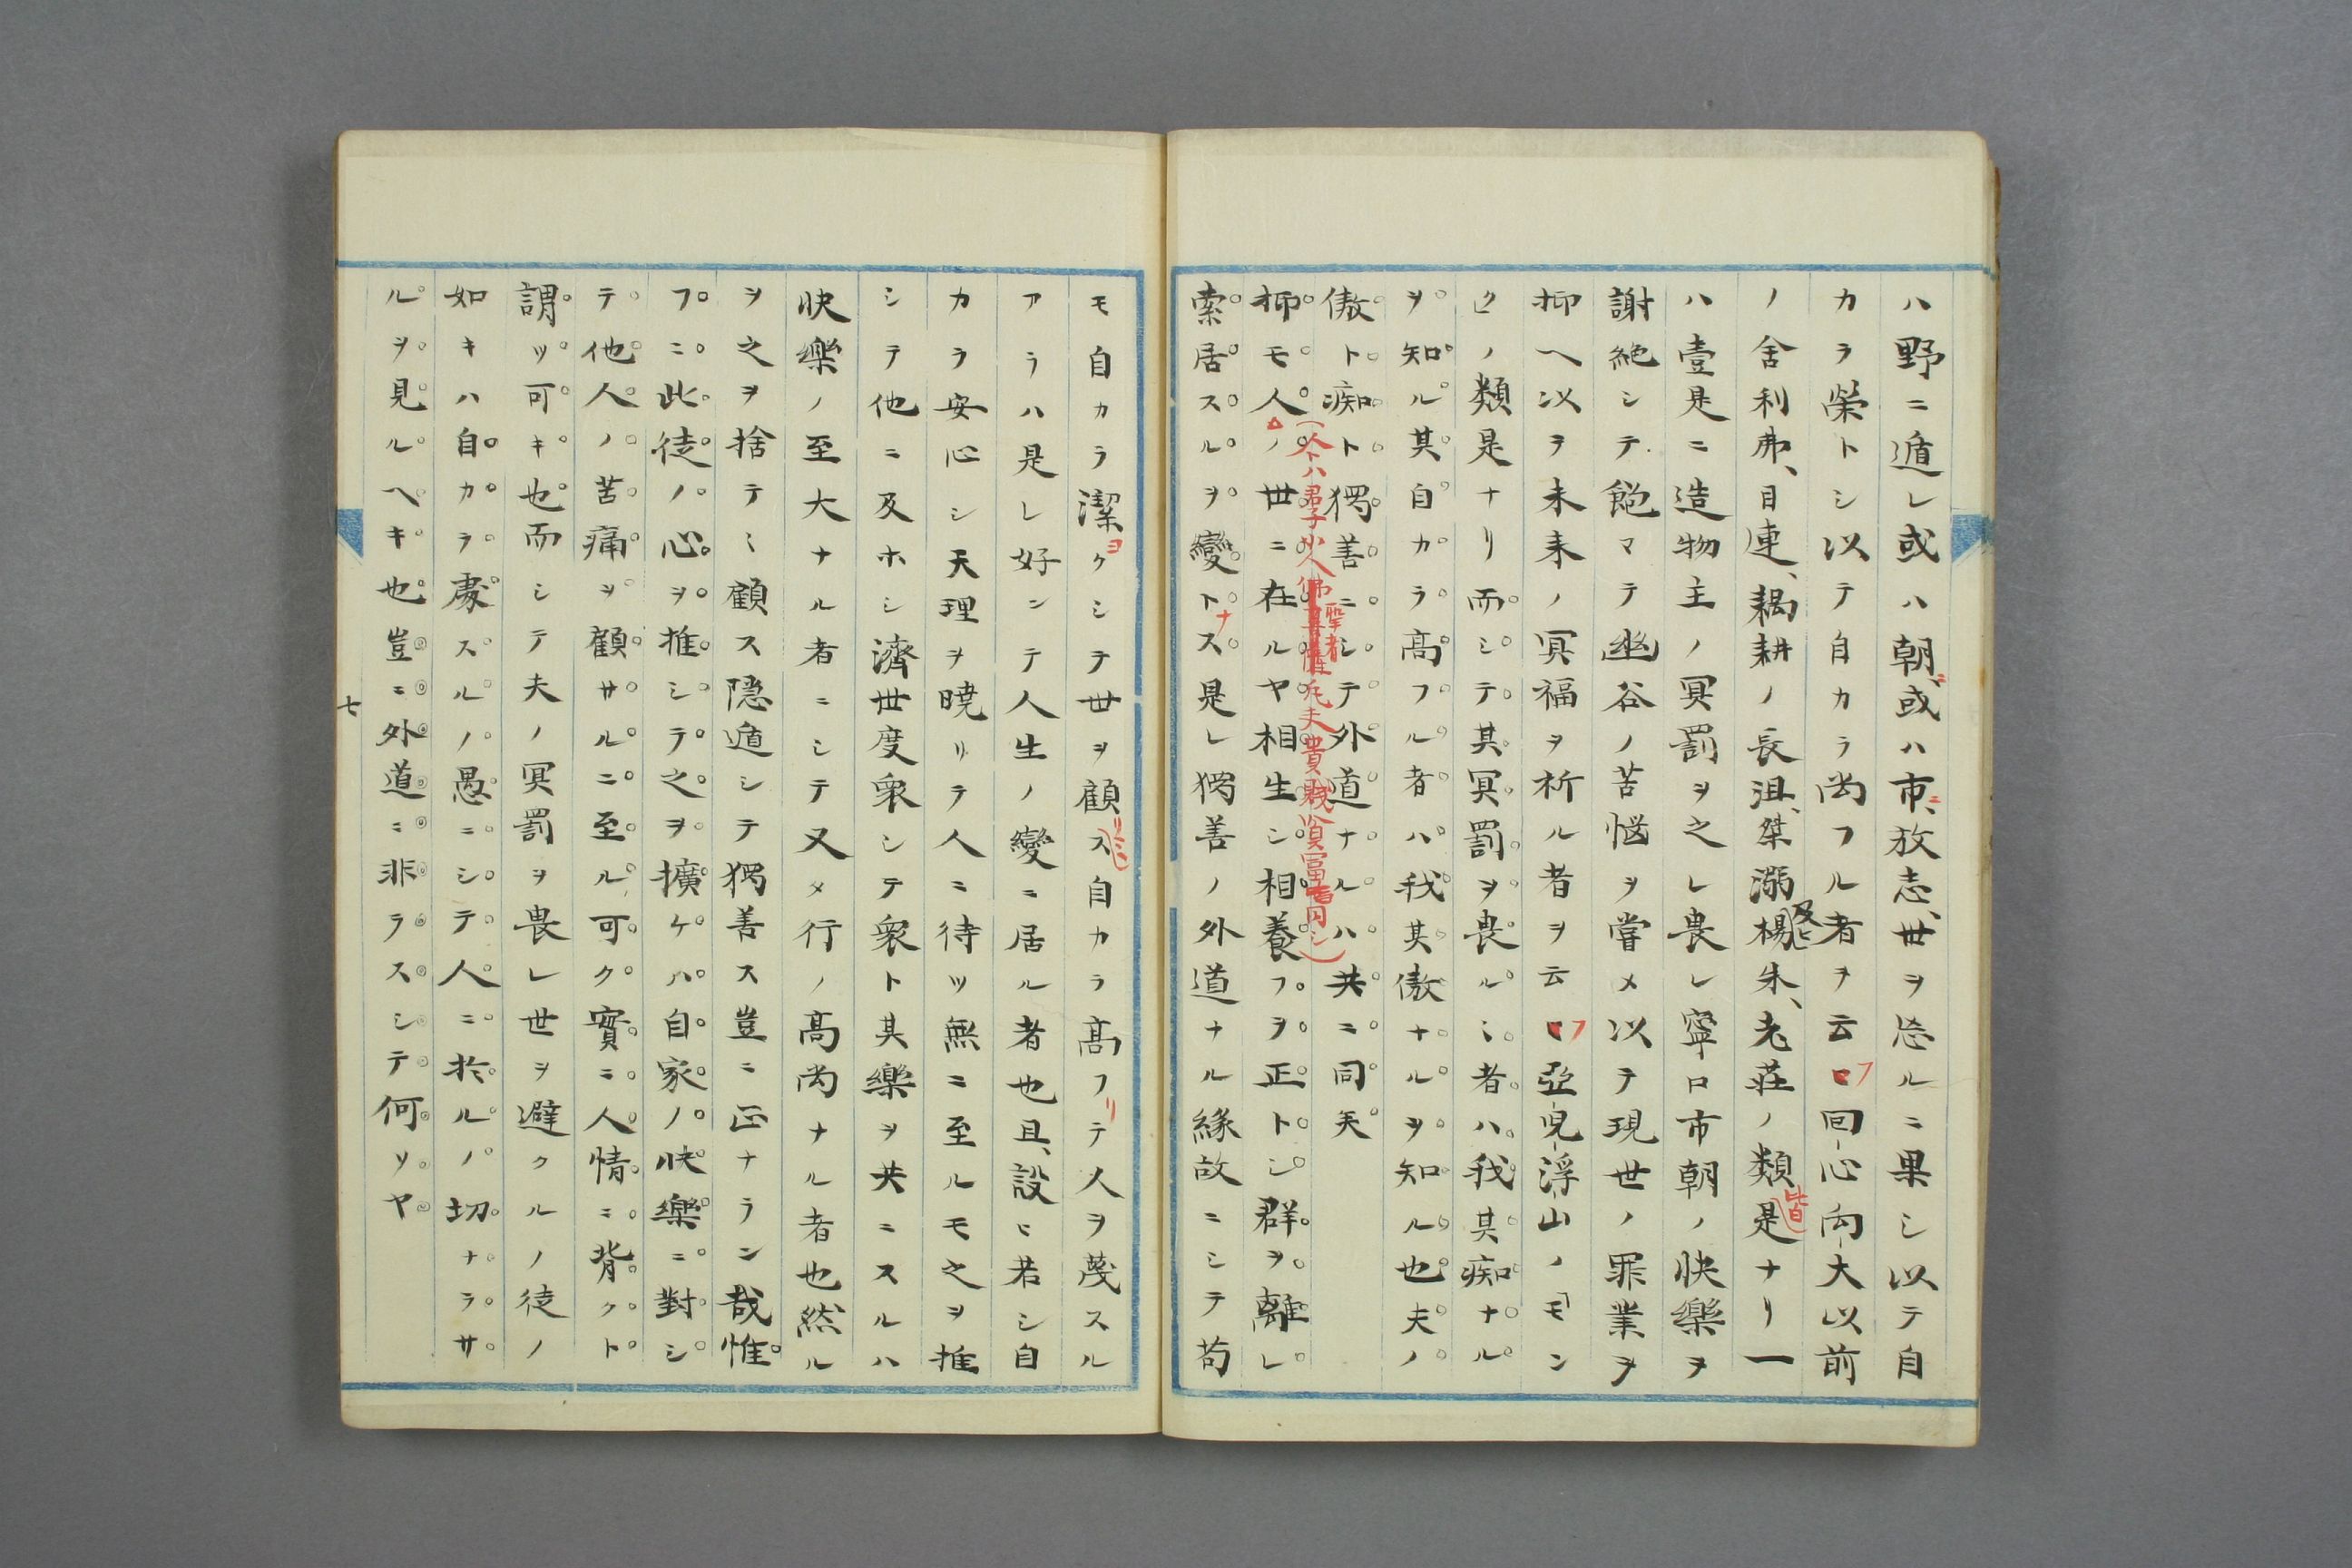 ハ野ニ遁レ或ハ朝ニ或ハ市ニ放志、世ヲ恣ルニ果シ以テ自
カラ榮トシ以テ自カラ尚フル者ヲ云フ回心向大以前
ノ舍利弗、目連、耦耕ノ長沮、桀溺及ヒ楊朱、老荘ノ類皆是ナリ一
ハ壹是ニ造物主ノ冥罰ヲ之レ畏レ寧ロ市朝ノ快樂ヲ
謝絶シテ飽マテ幽谷ノ苦悩ヲ嘗メ以テ現世ノ罪業ヲ
抑ヘ以ヲ未来ノ冥福ヲ祈ル者ヲ云フ亞児浮山ノモン
クノ類是ナリ而シテ其冥罰ヲ畏ルヽ者ハ我其痴ナル
ヲ知ル其自カラ高フル者ハ我其傲ナルヲ知ル也夫ノ
傲ト痴ト獨善ニシテ外道ナルハ共ニ同矣
(人トハ君子小人聖者凡夫貴賤貧富皆同シ)
抑モ人ノ世ニ在ルヤ相生シ相養フヲ正トシ群ヲ離レ
索居スルヲ變トナス是レ獨善ノ外道ナル縁故ニシテ苟
モ自カラ潔ヨクシテ世ヲ顧リミス自カラ高フリテ人ヲ蔑スル
アラハ是レ好ンテ人生ノ變ニ居ル者也且、設ヒ若シ自
カラ安心シ天理ヲ曉リテ人ニ待ツ無ニ至ルモ之ヲ推
シテ他ニ及ホシ濟世度衆シテ衆ト其樂ヲ共ニスルハ
快樂ノ至大ナル者ニシテ又タ行ノ高尚ナル者也然ル
ヲ之ヲ捨テヽ顧ス隠遁シテ獨善ス豈ニ正ナラン哉惟
フニ此徒ノ心ヲ推シテ之ヲ擴ケハ自家ノ快樂ニ對シ
テ他人ノ苦痛ヲ顧サルニ至ル可ク實ニ人情ニ背クト
謂ツ可キ也而シテ夫ノ冥罰ヲ畏レ世ヲ避クルノ徒ノ
如キハ自カラ處スルノ愚ニシテ人ニ於ルノ切ナラサ
ルヲ見ルヘキ也豈ニ外道ニ非ラスシテ何ソヤ
七